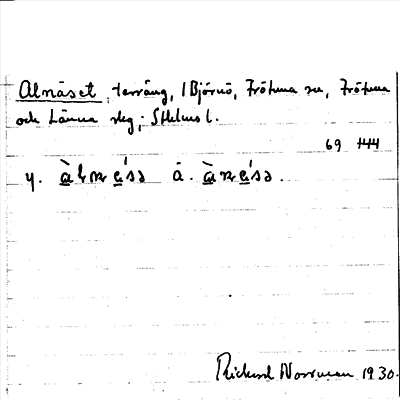 Alnäset, terräng, i Björnö, Frötuna sn, Frötuna
och Länna slg; Sthlms l.
69 144
y. àlnésə ä. ànésə.
Rickard Norrman 1930.